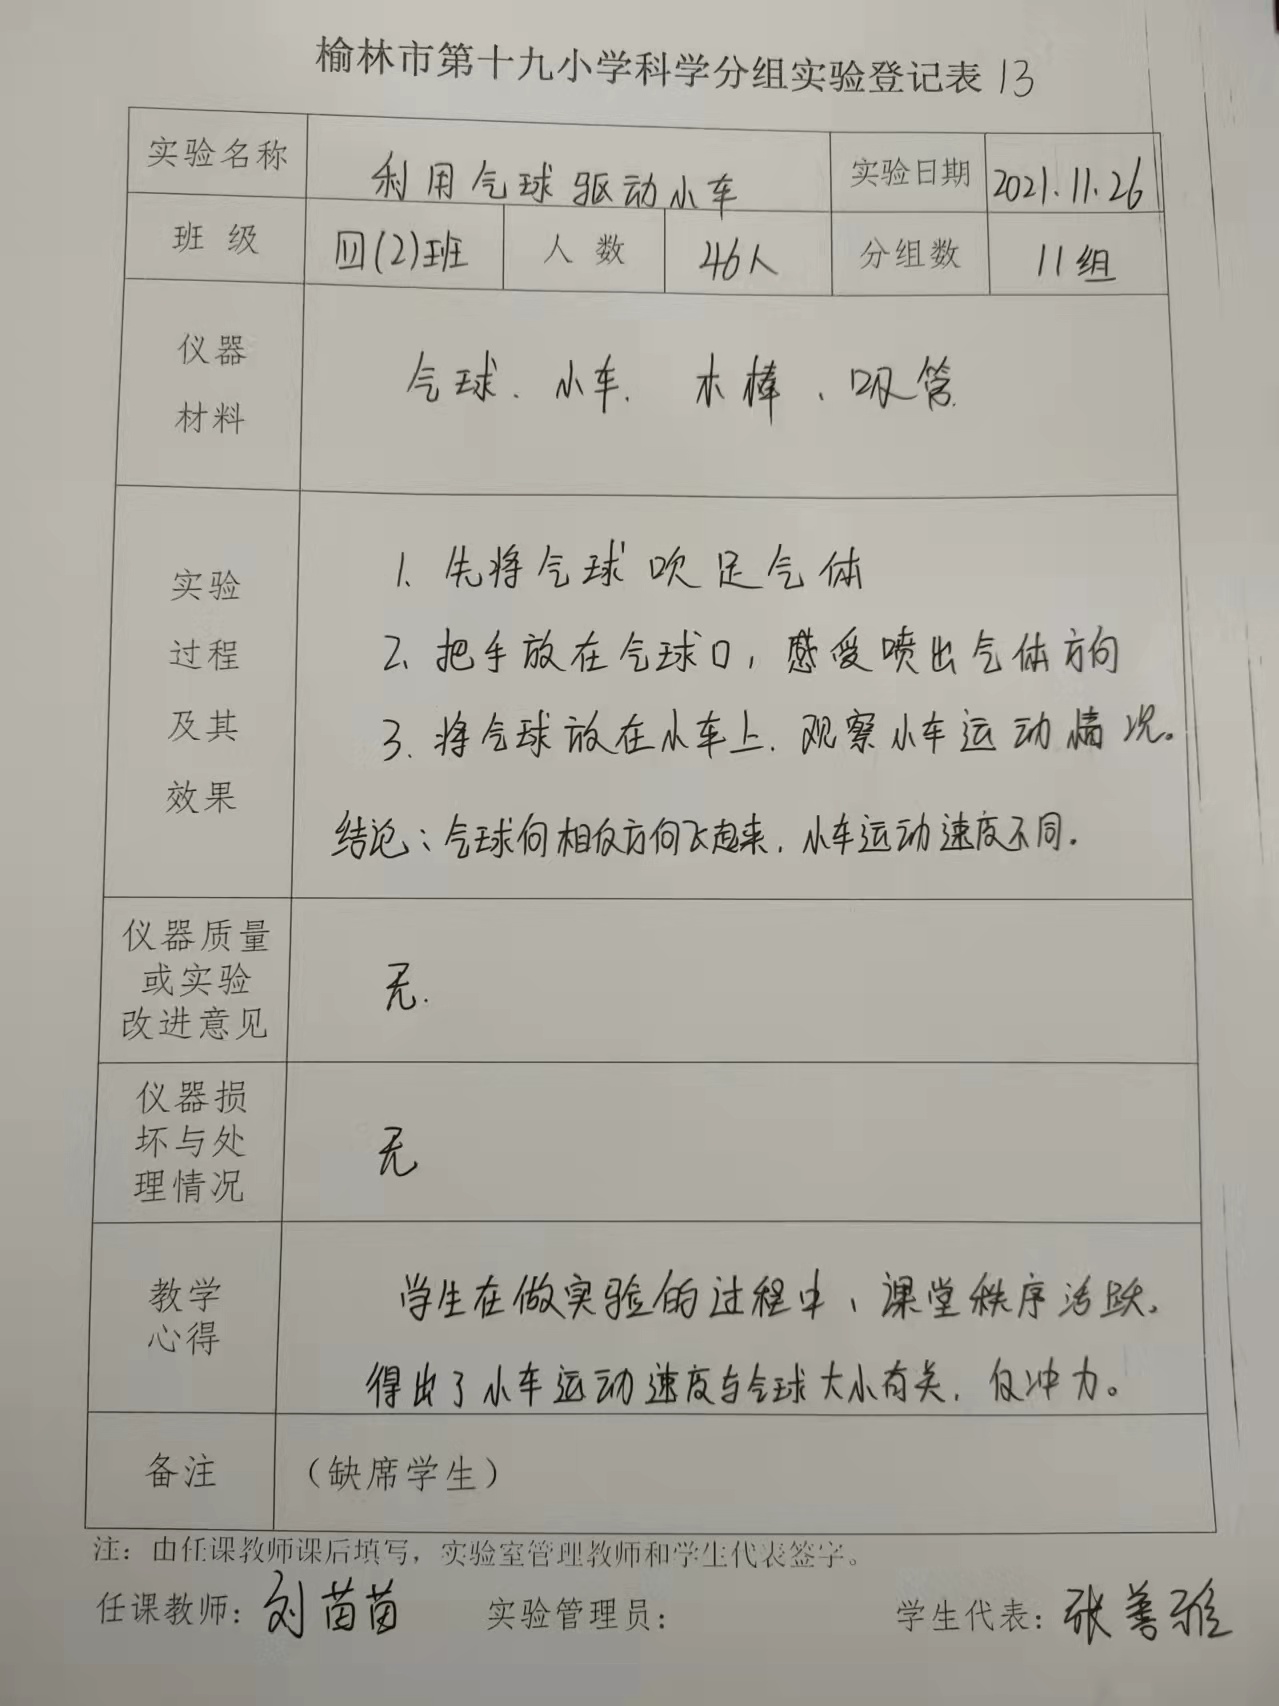 榆林市第十九小学科学分组实验登记表 13
实验名称 利用气球驱动小车 实验日期 2021.11.26
班 级 四(2)班 人 数 46人 分组数 11组
仪器
材料
气球、小车、木棒、吸管.
实验
过程
及其
效果
1. 先将气球吹足气体
2. 把手放在气球口,感受喷出气体方向
3. 将气球放在小车上.观察小车运动情况。
结论:气球向相反方向飞起来.小车运动速度不同.
仪器质量
或实验
改进意见
无.
仪器损
坏与处
理情况
无
教学
心得
学生在做实验的过程中,课堂秩序活跃.
得出了小车运动速度与气球大小有关.反冲力。
备注 (缺席学生)
注:由任课教师课后填写,实验室管理教师和学生代表签字。
任课教师:刘苗苗 实验管理员: 学生代表:张善雅